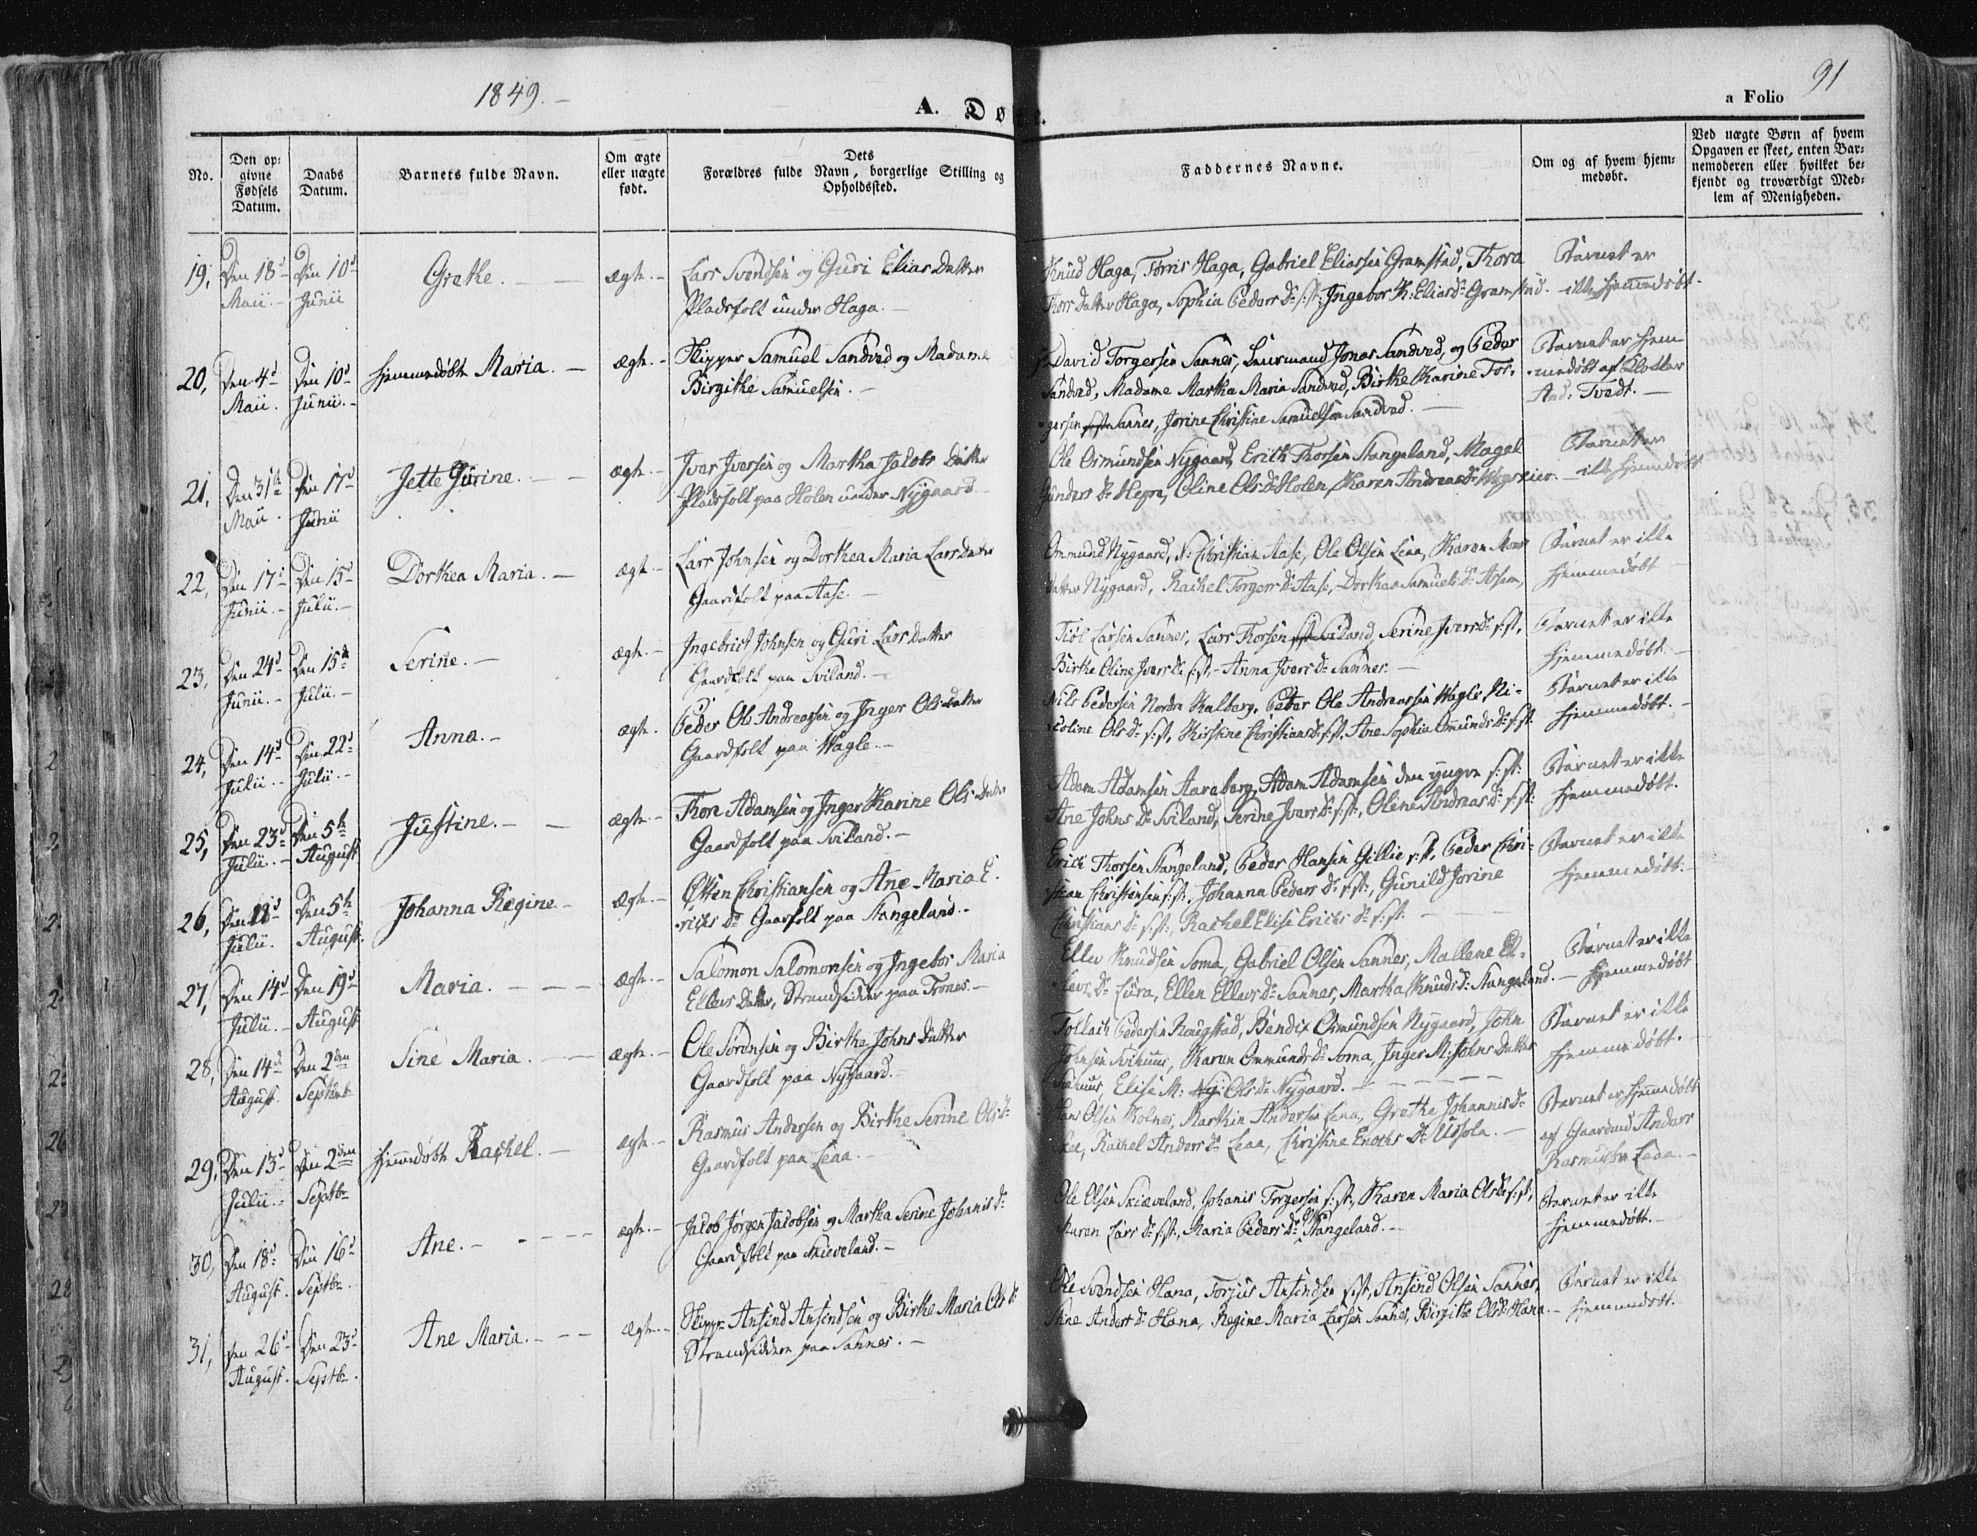 1849.-
A. Dø
a Folio 91
No.
Den op-
givne
Fødsels
Datum.
Daabs
Datum.
Barnets fulde Navn.
Om ægte
eller uægte
født.
Dets
Forældres fulde Navn, borgerlige Stilling og
Opholdssted.
Faddernes Navne.
Om og af hvem hjem-
medøbt.
Ved uægte Børn af hvem
Opgaven er skeet, enten Bar-
nemoderen eller hvilket be-
kjendt og troværdigt Med-
lem af Menigheden.
19, Den 18d Maii.- Den 10d Junii Grethe. ægte.-
Lars Svendsen og Guri Elias Datter
Pladsfolk under Haga.-
Knud Haga, Tørris Haga, Gabriel Eliassen Gramstad, Thora
Thors Datter Haga, Sophia Peders D. s:st:, Ingebor K: Elias D. Gramstad.
Barnet er
ikke hjemmedøbt.
20, Den 4d Maii. Den 10d Junii.- hjemmedøbte Maria.- ægte.-
Skipper Samuel Sandved og Madame
Birgithe Samuelsen.-
David Torgersen Sannes, Leusmand Jonas Sandved, og Peder
Sandved, Madame Martha Maria Sandved, Birthe Karine Tor-
gersen Sannes, Jorine Christine Samuelsen Sandved.-
Barnet er hjem
medøbt af Klokker
And: Tvedt.-
21, Den 31te Maii. Den 17d Junii Jette Jurine.- ægte.-
Iver Iversen og Martha Jacobs Datter
Pladsfolk paa Holen under Nygaard
Ole Osmundsen Nygaard, Erich Thorsen Stangeland, Magel
Gunders D. Hegre, Oline Ols D. Holen, Karen Andreas D.
Barnet er
ikke hjemmedøbt
22, Den 17d Junii.- Den 15d Julii.- Dorthea Maria.- ægte.-
Lars Johnsen og Dorthea Maria Lars Datter
Gaardfolk paa Aase.-
Ommund Nygaard, N: Christian Aase, Ole Olsen Leaa, Karen
Datter Nygaard, Rachel Torgers D. Aase, Dorthea Samuels D.
Barnet er ikke
hjemmedøbt
23, Den 24d Junii.- Den 15de Julii.- Serine.- ægte.-
Ingebrict Johnsen og Guri Lars Datter
Gaardfolk paa Sviland.-
Lars Thorsen Sviland, Serine Ivers D. s:st,
Birthe Oline Ivers D. s:st,- Anna Ivers D. Sannes.-
Barnet er ikke
hjemmedøbt.-
24, Den 14d Julii.- Den 22d Julii.- Anna.- ægte.
Peder Ole Andreassen og Inger Ols Datter
Gaardfolk paa Wagle.-
Nils Pedersen Nordre Kalberg, Peter Ole Andreassen Wagle, Ni-
coline Ols D. s:st, Kirstine Christians D. s:st, Ane Sophia Omunds D. s:st
Barnet er ikke
hjemmedøbt.-
25, Den 23d Julii.- Den 5te August Justine.- ægte.-
Thore Adamsen og Inger Karine Ols Datter
Gaardfolk paa Sviland.-
Adam Adamsen Aaraberg, Adam Adamsen den yngre s:st:
Ane Johns D. Sviland, Serine Ivers D. s:st:, Olene Andreas D. s:st:
Barnet er ikke
hjemmedøbt.
26, Julii. Den 5te August. Johanna Regine.- ægte.-
Osten Christiansen og Ane Maria E-
richs D. Gaarfolk paa Stangeland.-
Erich Thorsen Stangeland, Peder Hansen Gillie s:st, Peder Chri-
stian Christensen s:st:, Johanna Peders D. s:st:, Gunild Jorine
Christians D. s:st:, Rachel Elise Erichs D. s:st:
Barnet er ikke
hjemmedøbt.-
27, Den 14d Julii.- Den 19d August Maria.- ægte.-
Salomon Salomonsen og Ingebor Maria
Ellevs Datter, Strandsidder paa Trones.-
Ellev Knudsen Soma, Gabriel Olsen Sannes, Mallene El-
levs D. Lura, Ellen Ellevs D. Sannes, Martha Knuds D. Stangeland.-
Barnet er ikke
hjemmedøbt
28, Den 14d August. Den 2den Septbr. Sine Maria.- ægte.-
Ole Sørensen og Birthe Johns Datter
Gaardfolk paa Nygaard.-
Tollach Pedersen Rougstad, Bendix Osmundsen Nygaard, John
Johnsen Svihuus, Karen Ommunds D. Soma, Inger M: Johns Datter
Svihuus, Elise M: Ols D. Nygaard.-
Barnet er ikke
hjemmedøbt.
29, Den 13d Julii.- Den 2den Septbr hjemmedøbte Rachel.- ægte.-
Rasmus Andersen og Birthe Serine Ols D.
Gaardfolk paa Leaa.-
Hans Olsen Holnes, Marthin Andersen Leaa, Grethe Johannis D.
Rachel Anders D. Leaa, Christine Enochs D. Ussola.-
Barnet er hjemmedøbt
af Gaardmd Anders
Rasmussen Leaa.-
30, Den 18d August. Den 16d Septbr. Ane.- ægte.-
Jacob Jørgen Jacobsen og Martha Serine Johanis D.
Gaardfolk paa Skieveland.-
Ole Olsen Skiæveland, Johanis Torgersen s:st:, Karen Maria Ols D. s:st,
Karen Lars D. s:st:, Maria Peders D. Stangeland.-
Barnet er ikke
hjemmedøbt.-
31, Den 26d August. Den 23d Septbr. Ane Maria.- ægte.-
Skippr. Ansind Ansindsen og Birthe Maria Ols D.
Strandsiddere paa Sannes.-
Ole Svendsen Hana, Torjus Ansindsen s:st, Ansind Olsen Sannes,
Stine Anders D. Hana, Regine Maria Larsen Sannes, Birgithe Ols D. Hana.-
Barnet er ikke
hjemmedøbt.